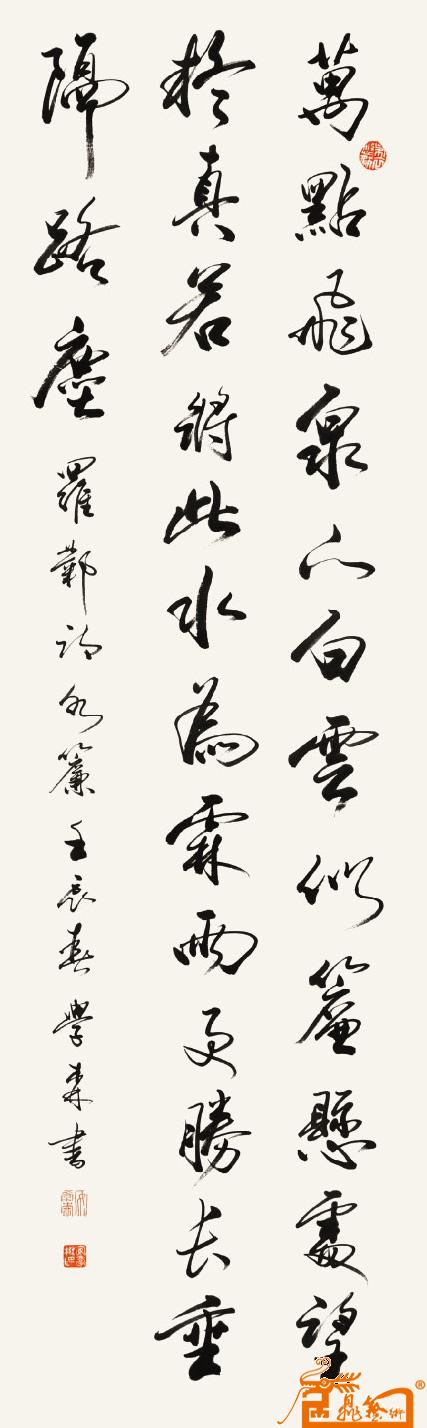 萬點飛泉下白雲似簾懸處望
疑真若將此水為霖雨更勝長垂
隔路塵 羅鄴詩水簾壬辰春學森書